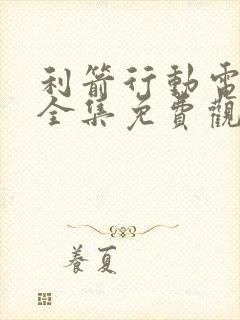 利箭行動電
全集免費觀
養夏